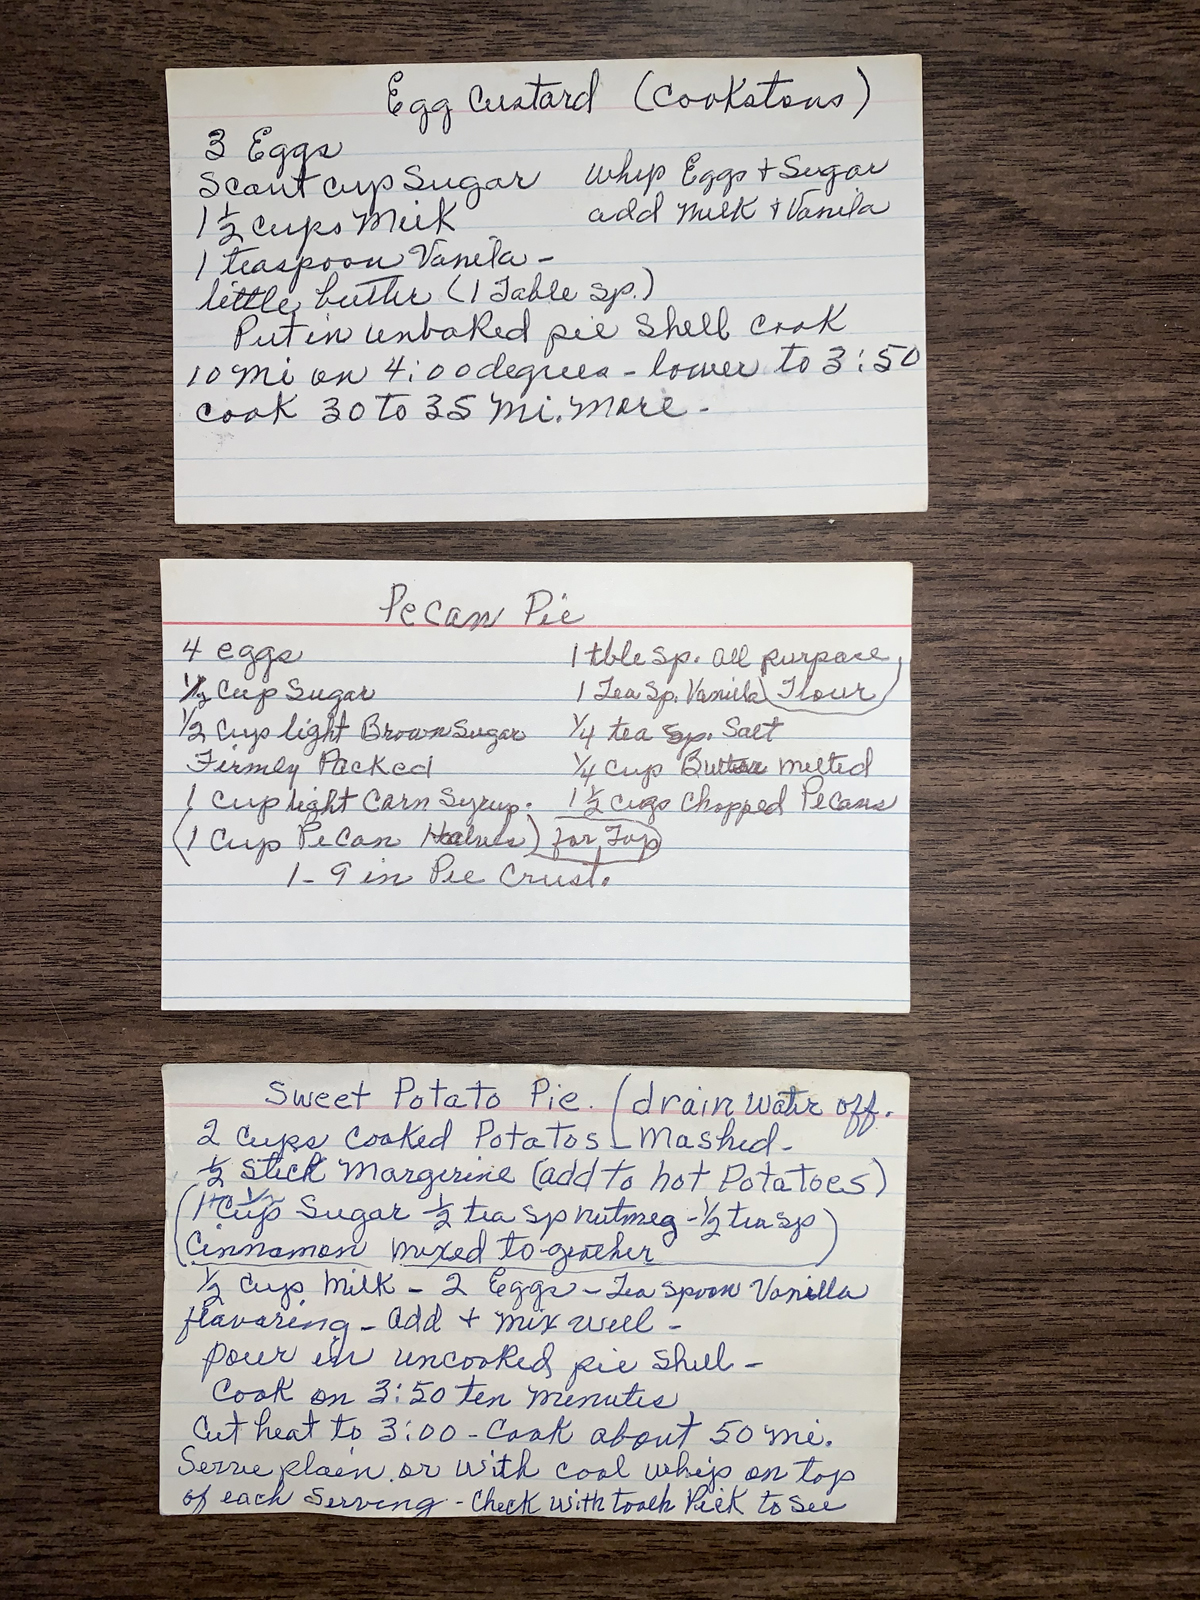 Egg Custard (Cookstons)
3 Eggs
Scant cup Sugar
1 1/2 cups Milk
1 teaspoon Vanila -
little butter (1 Table Sp.)
whip Eggs + Sugar
add Milk + Vanila
Put in unbaked pie shell cook
10 mi on 4:00 degrees - lower to 3:50
cook 30 to 35 mi. more -
Pecan Pie
4 eggs
1/2 Cup Sugar
1/2 Cup light Brown Sugar
Firmly Packed
1 Cup light Corn Syrup.
(1 Cup Pecan Halves) for Top
1 tble sp. all purpose
1 Tea Sp. Vanilla (Flour)
1/4 tea sp. Salt
1/4 Cup Butter melted
1 1/2 cups Chopped Pecans
1 - 9 in Pie Crust.
Sweet Potato Pie. (drain water off.
2 Cups Cooked Potatos - Mashed -
1/2 Stick Margerine (add to hot Potatoes)
(1 1/2 Cup Sugar 1/2 tea sp nutmeg - 1/2 tea sp
Cinnamon mixed to-geather)
1/2 Cup Milk - 2 Eggs - Tea spoon Vanilla
flavoring - add + mix well -
pour in uncooked pie shell -
Cook on 3:50 ten minutes
Cut heat to 3:00 - Cook about 50 mi.
Serve plain or with cool whip on top
of each serving - Check with tooth Pick to see